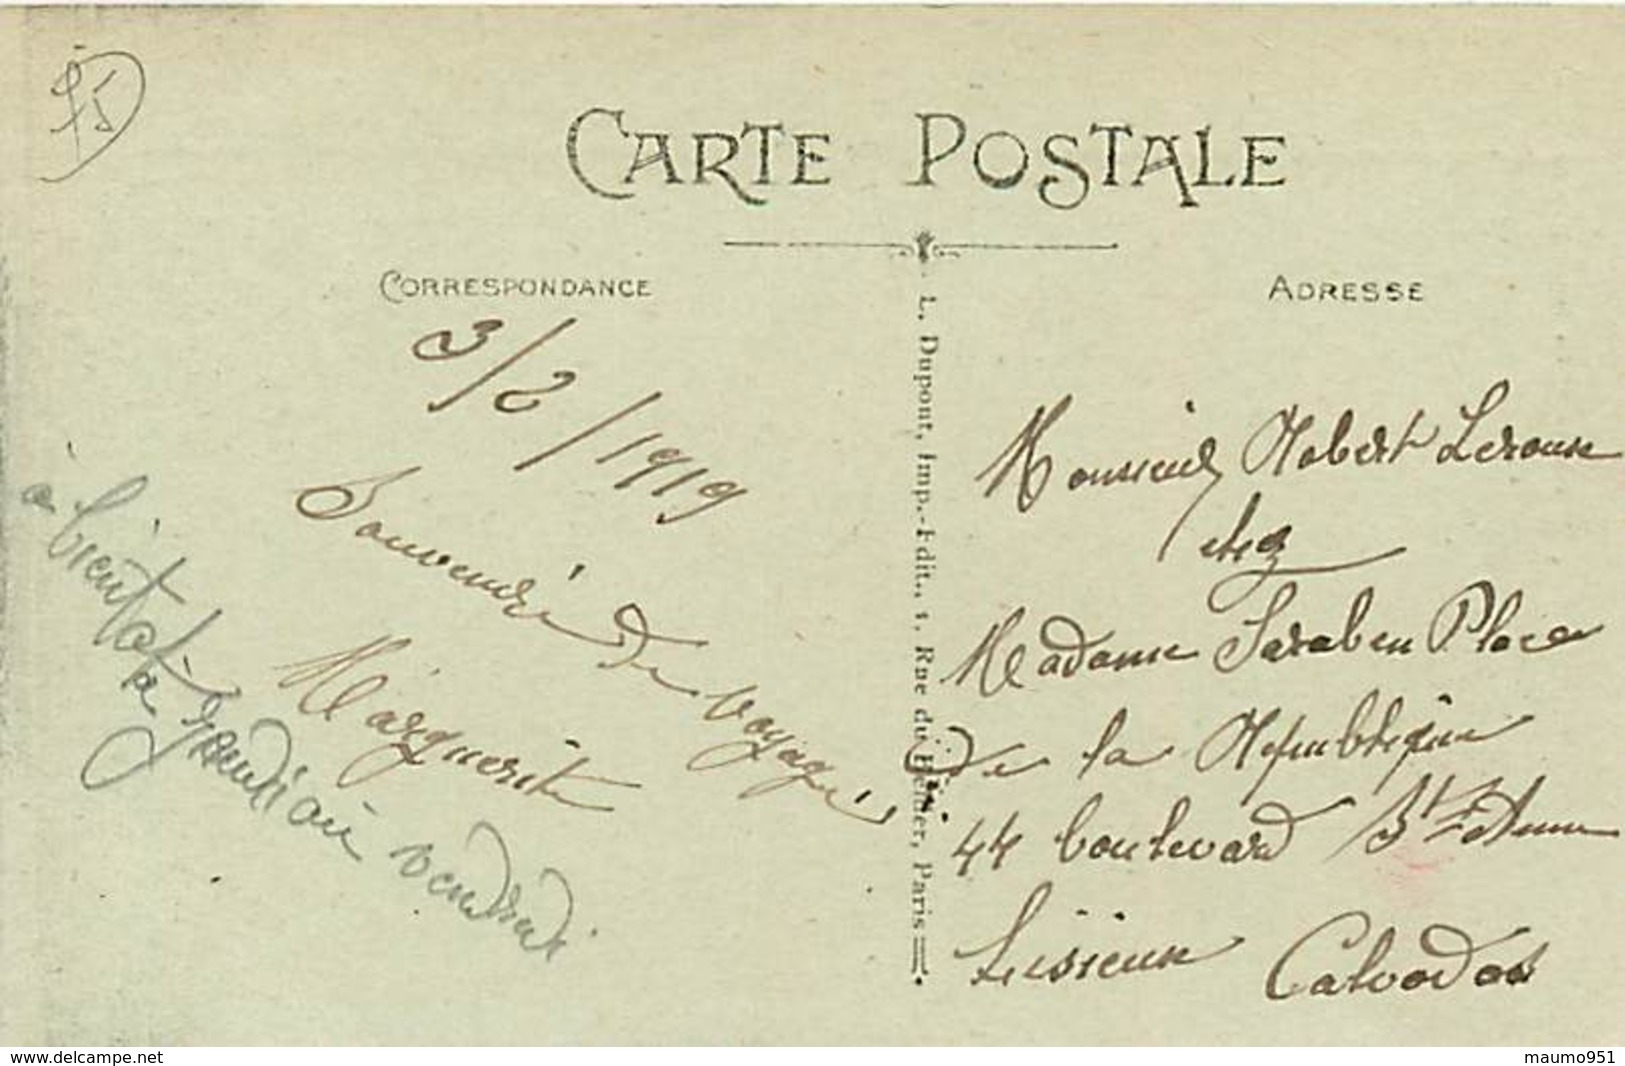 75
CARTE POSTALE
CORRESPONDANCE
ADRESSE
3/2/1919
Souvenir de voyage
Marguerite
à bientot
à jeudi ou vendredi
L. Dupont, Imp.-Edit., 1, Rue du Hélder, Paris
Monsieur Robert Leroux
chez
Madame Saraben Place
de la République
44 boulevard St
Lisieux Calvados
www.delcampe.net
maumo951